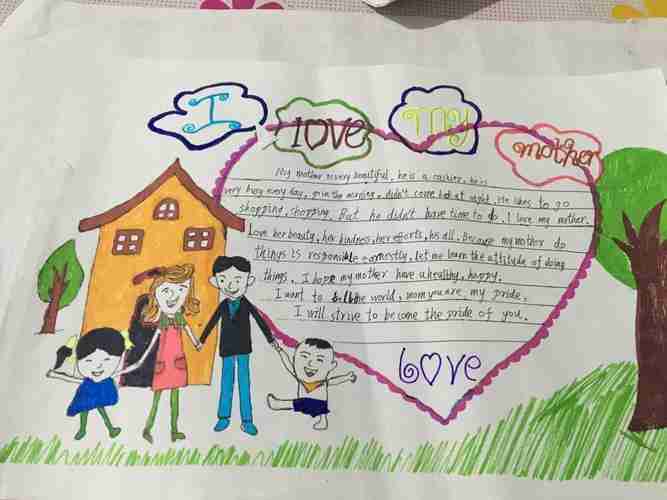 I
love
my
mother
My mother is very beautiful, he is a cashier, he is
very busy every day, go in the morning, didn't come back at night. He likes to go
shopping, shopping. But he didn't have time to do. I love my mother.
Love her beauty, her kindness, her efforts, his all. Because my mother do
things is responsible earnestly, let me learn the attitude of doing
things. I hope my mother have a healthy, happy.
I want to the world, mom you are my pride.
I will strive to become the pride of you.
Love